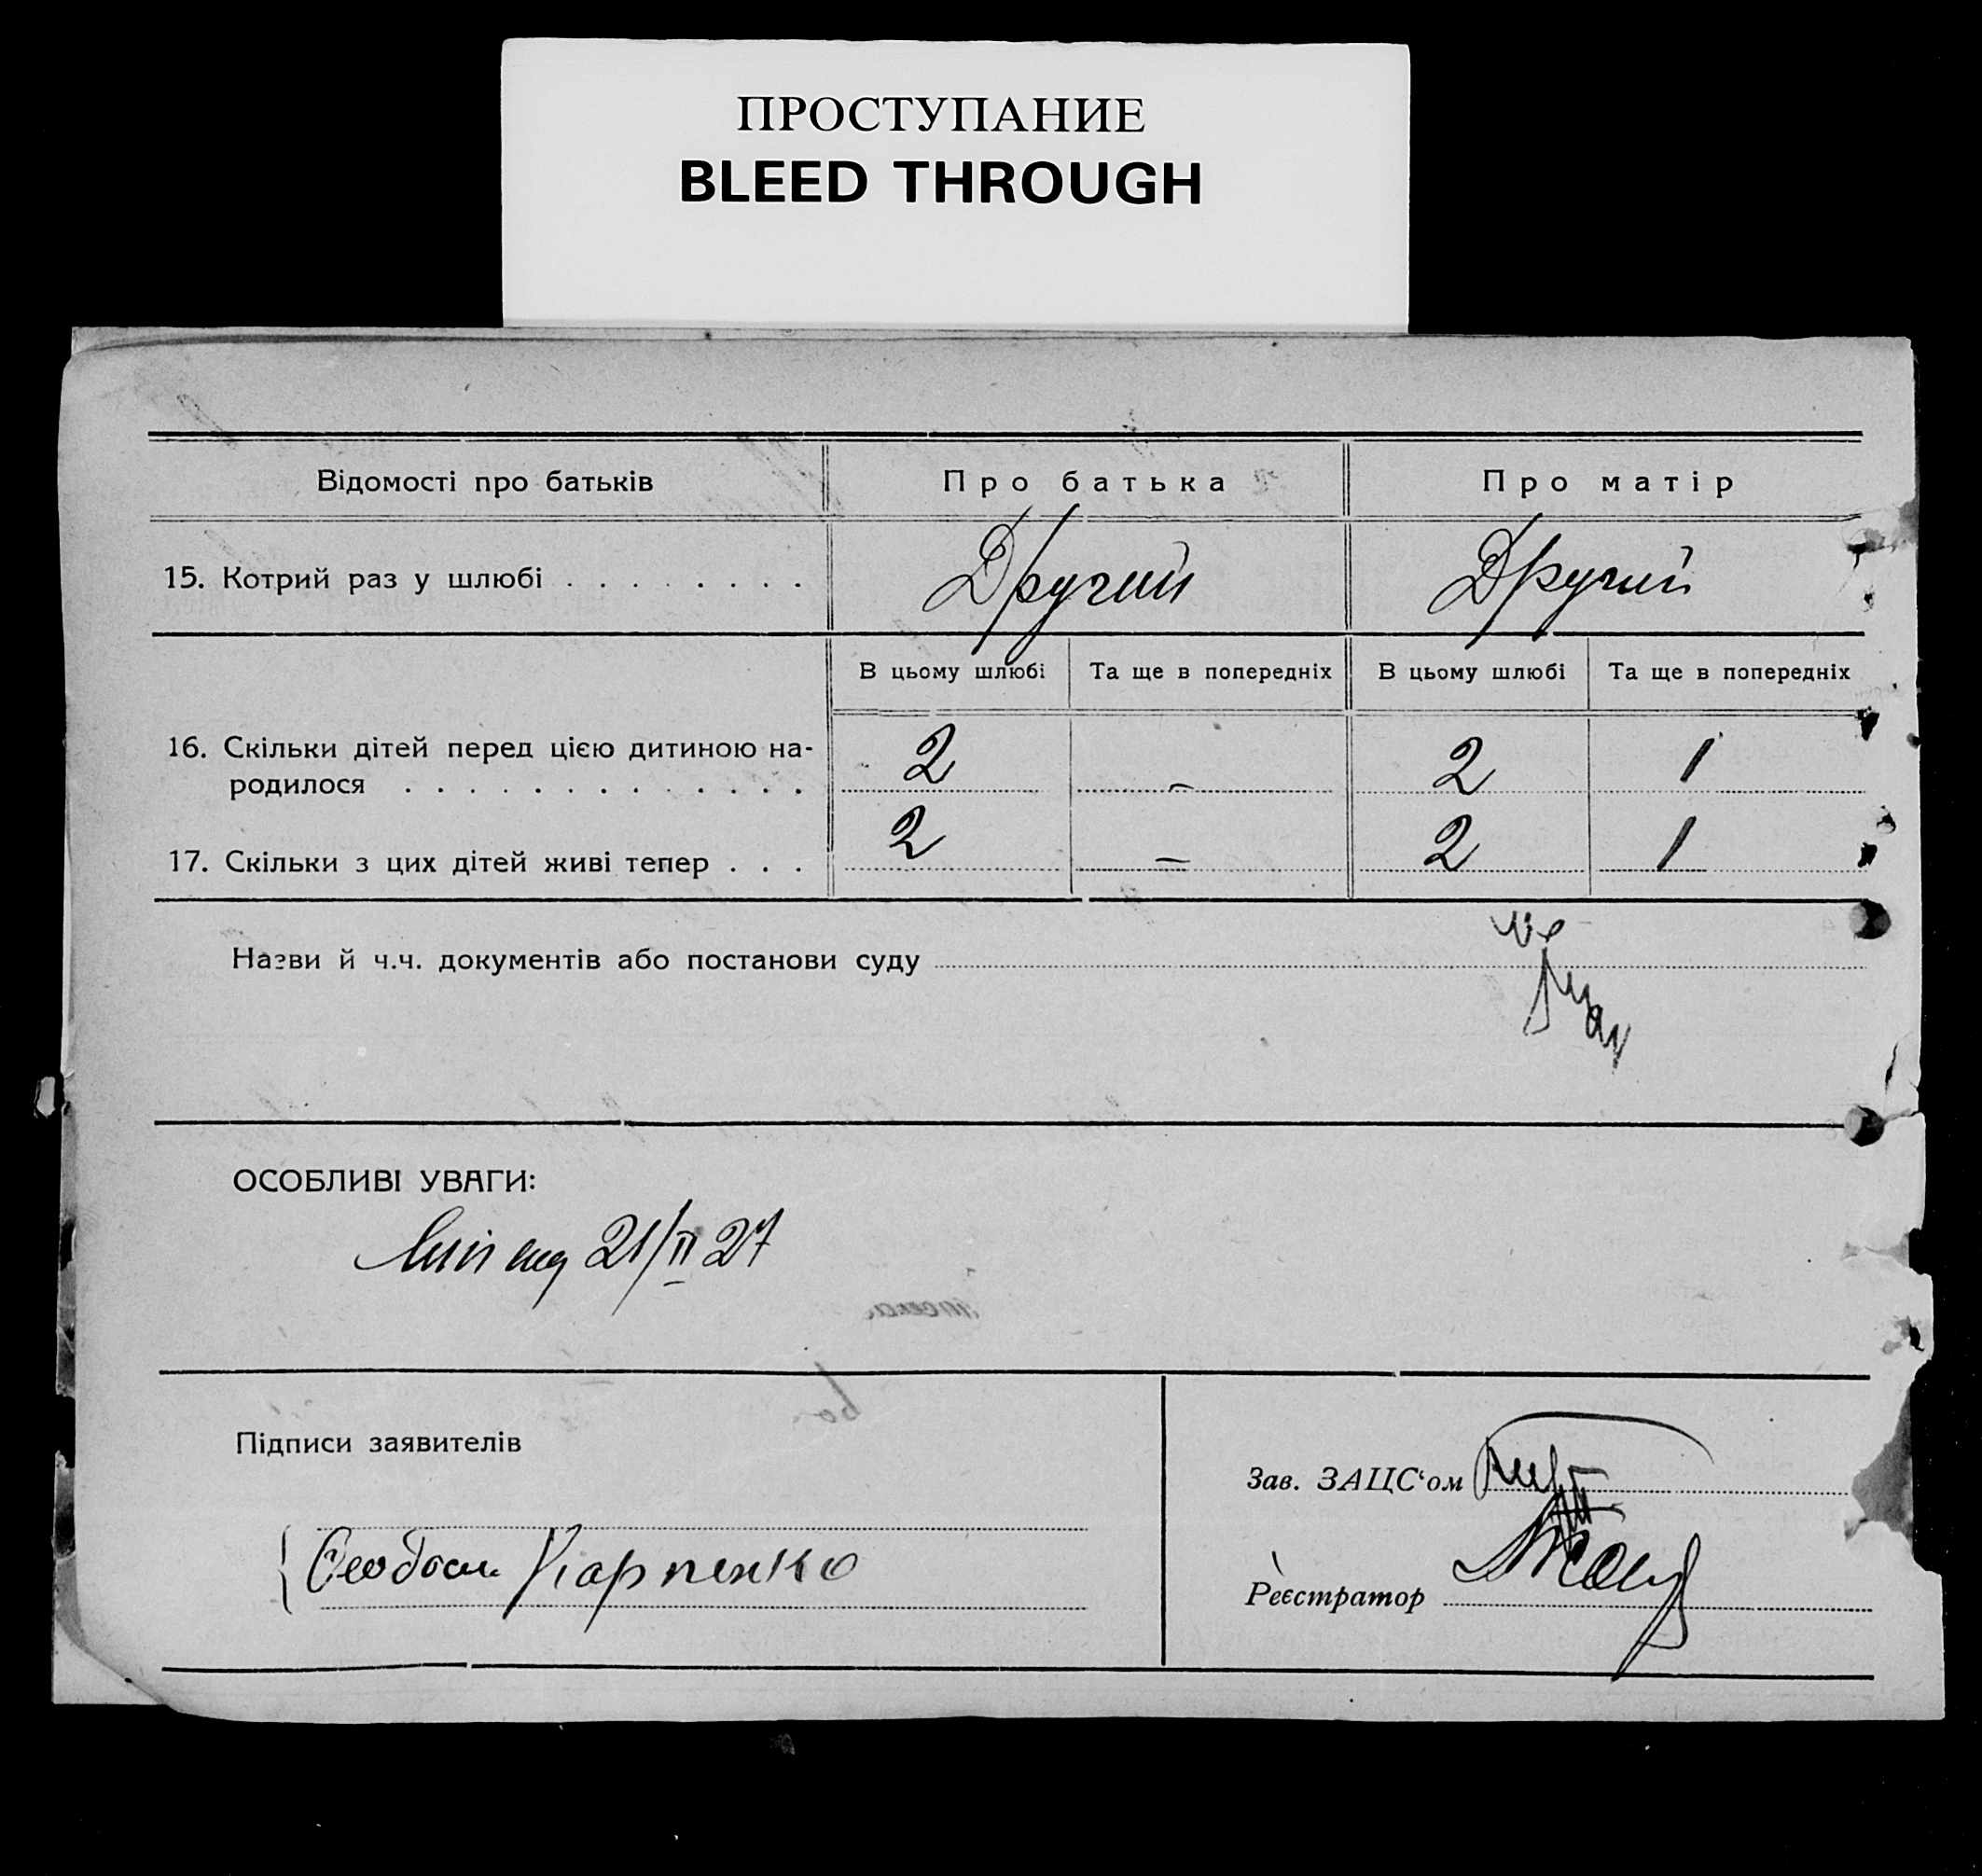 ПРОСТУПАНИЕ
BLEED THROUGH
Відомості про батьків
Про батька
Про матір
15. Котрий раз у шлюбі . . . . . . . .
Другий
Другий
В цьому шлюбі
Та ще в попередніх
В цьому шлюбі
Та ще в попередніх
16. Скільки дітей перед цією дитиною на-
родилося . . . . . . . . . . . . .
2
–
2
1
17. Скільки з цих дітей живі тепер . . .
2
–
2
1
Назви й ч.ч. документів або постанови суду
ОСОБЛИВІ УВАГИ:
21/II 27
Підписи заявителів
Зав. ЗАЦС‘ом
Карпенко
Реєстратор